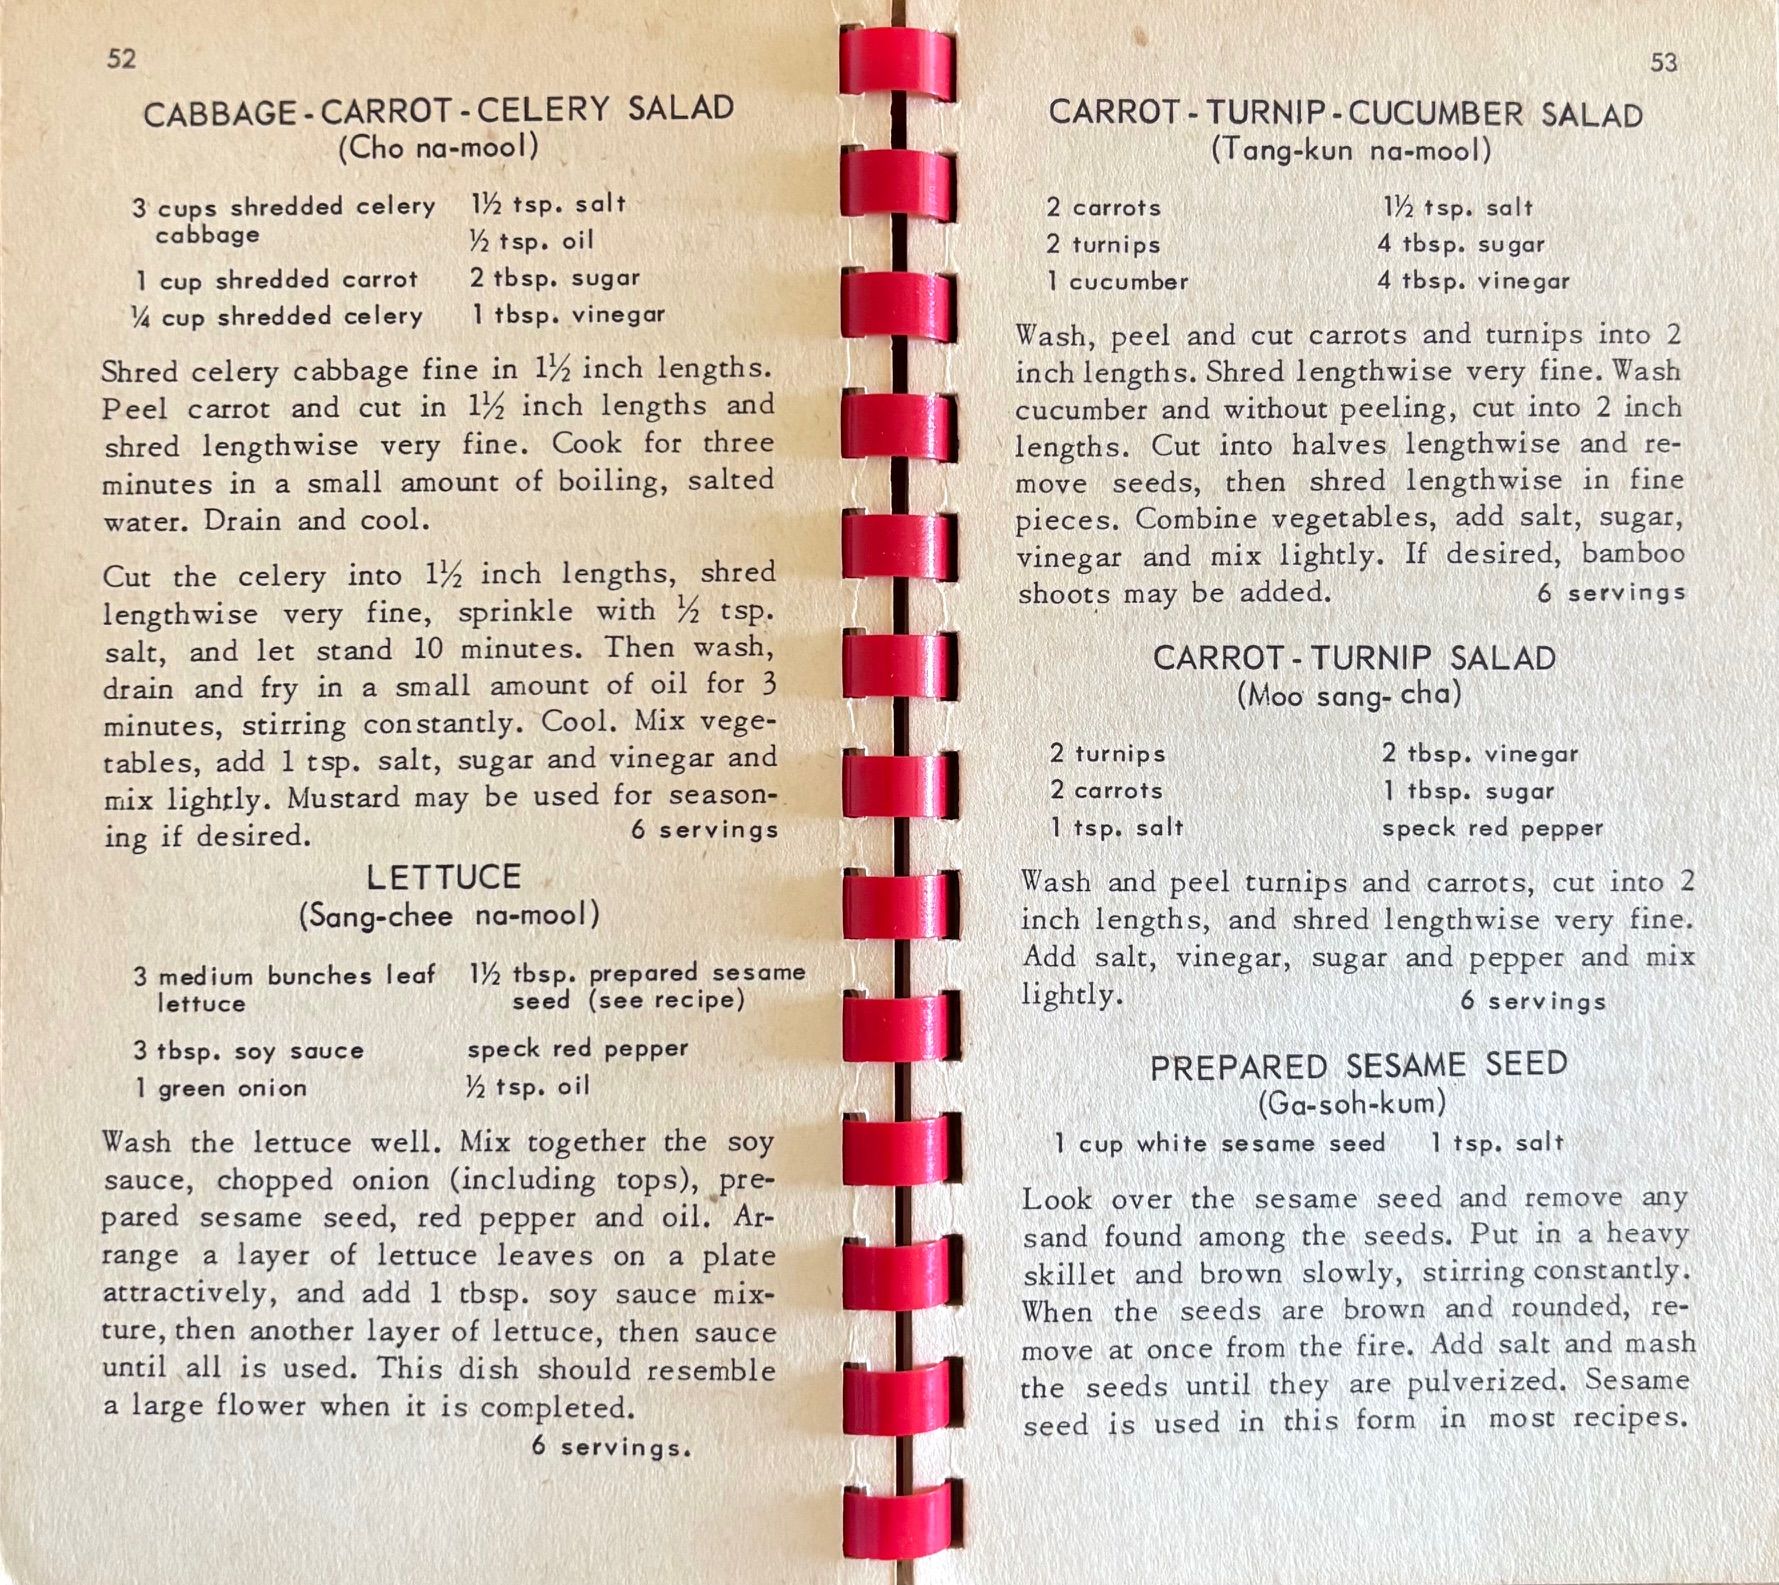 52
CABBAGE - CARROT - CELERY SALAD
(Cho na-mool)
3 cups shredded celery cabbage
1 cup shredded carrot
¼ cup shredded celery
1½ tsp. salt
½ tsp. oil
2 tbsp. sugar
1 tbsp. vinegar
Shred celery cabbage fine in 1½ inch lengths.
Peel carrot and cut in 1½ inch lengths and
shred lengthwise very fine. Cook for three
minutes in a small amount of boiling, salted
water. Drain and cool.
Cut the celery into 1½ inch lengths, shred
lengthwise very fine, sprinkle with ½ tsp.
salt, and let stand 10 minutes. Then wash,
drain and fry in a small amount of oil for 3
minutes, stirring constantly. Cool. Mix vege-
tables, add 1 tsp. salt, sugar and vinegar and
mix lightly. Mustard may be used for season-
ing if desired. 6 servings
LETTUCE
(Sang-chee na-mool)
3 medium bunches leaf
lettuce
3 tbsp. soy sauce
1 green onion
1½ tbsp. prepared sesame
seed (see recipe)
speck red pepper
½ tsp. oil
Wash the lettuce well. Mix together the soy
sauce, chopped onion (including tops), pre-
pared sesame seed, red pepper and oil. Ar-
range a layer of lettuce leaves on a plate
attractively, and add 1 tbsp. soy sauce mix-
ture, then another layer of lettuce, then sauce
until all is used. This dish should resemble
a large flower when it is completed.
6 servings.
53
CARROT - TURNIP - CUCUMBER SALAD
(Tang-kun na-mool)
2 carrots
2 turnips
1 cucumber
1½ tsp. salt
4 tbsp. sugar
4 tbsp. vinegar
Wash, peel and cut carrots and turnips into 2
inch lengths. Shred lengthwise very fine. Wash
cucumber and without peeling, cut into 2 inch
lengths. Cut into halves lengthwise and re-
move seeds, then shred lengthwise in fine
pieces. Combine vegetables, add salt, sugar,
vinegar and mix lightly. If desired, bamboo
shoots may be added. 6 servings
CARROT - TURNIP SALAD
(Moo sang- cha)
2 turnips
2 carrots
1 tsp. salt
2 tbsp. vinegar
1 tbsp. sugar
speck red pepper
Wash and peel turnips and carrots, cut into 2
inch lengths, and shred lengthwise very fine.
Add salt, vinegar, sugar and pepper and mix
lightly. 6 servings
PREPARED SESAME SEED
(Ga-soh-kum)
1 cup white sesame seed 1 tsp. salt
Look over the sesame seed and remove any
sand found among the seeds. Put in a heavy
skillet and brown slowly, stirring constantly.
When the seeds are brown and rounded, re-
move at once from the fire. Add salt and mash
the seeds until they are pulverized. Sesame
seed is used in this form in most recipes.